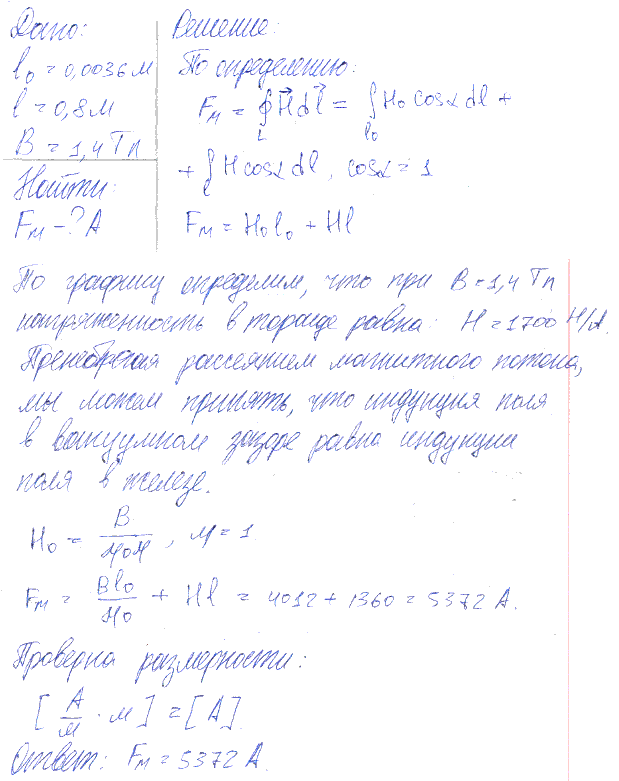 Дано:
l₀ = 0,0036 м
l = 0,8 м
B = 1,4 Тл
Найти:
Fₘ – ? А
Решение:
По определению:
Fₘ = ∮_L H⃗dl⃗ = ∫_l₀ H₀ cosα dl +
+ ∫_l H cosα dl, cosα = 1
Fₘ = H₀l₀ + Hl
По графику определим, что при B = 1,4 Тл
напряженность в тороиде равна: H = 1700 Н/А.
Пренебрегая рассеянием магнитного потока,
мы можем принять, что индукция поля
в вакуумном зазоре равна индукции
поля в железе.
H₀ = B/(μ₀μ), μ = 1
Fₘ = Bl₀/μ₀ + Hl = 4012 + 1360 = 5372 А.
Проверка размерности:
[А/м · м] = [А]
Ответ: Fₘ = 5372 А.